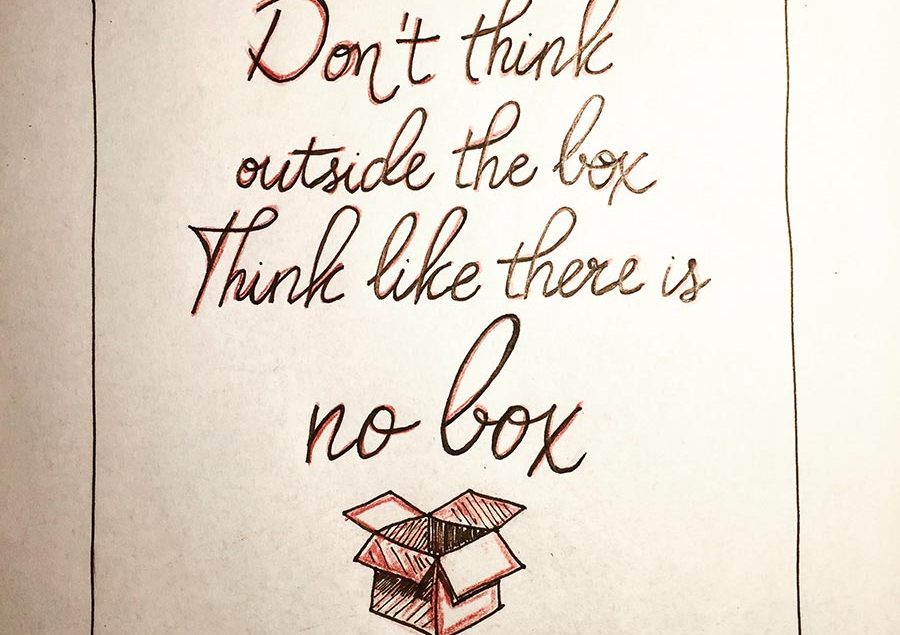 Don't think
outside the box
Think like there is
no box